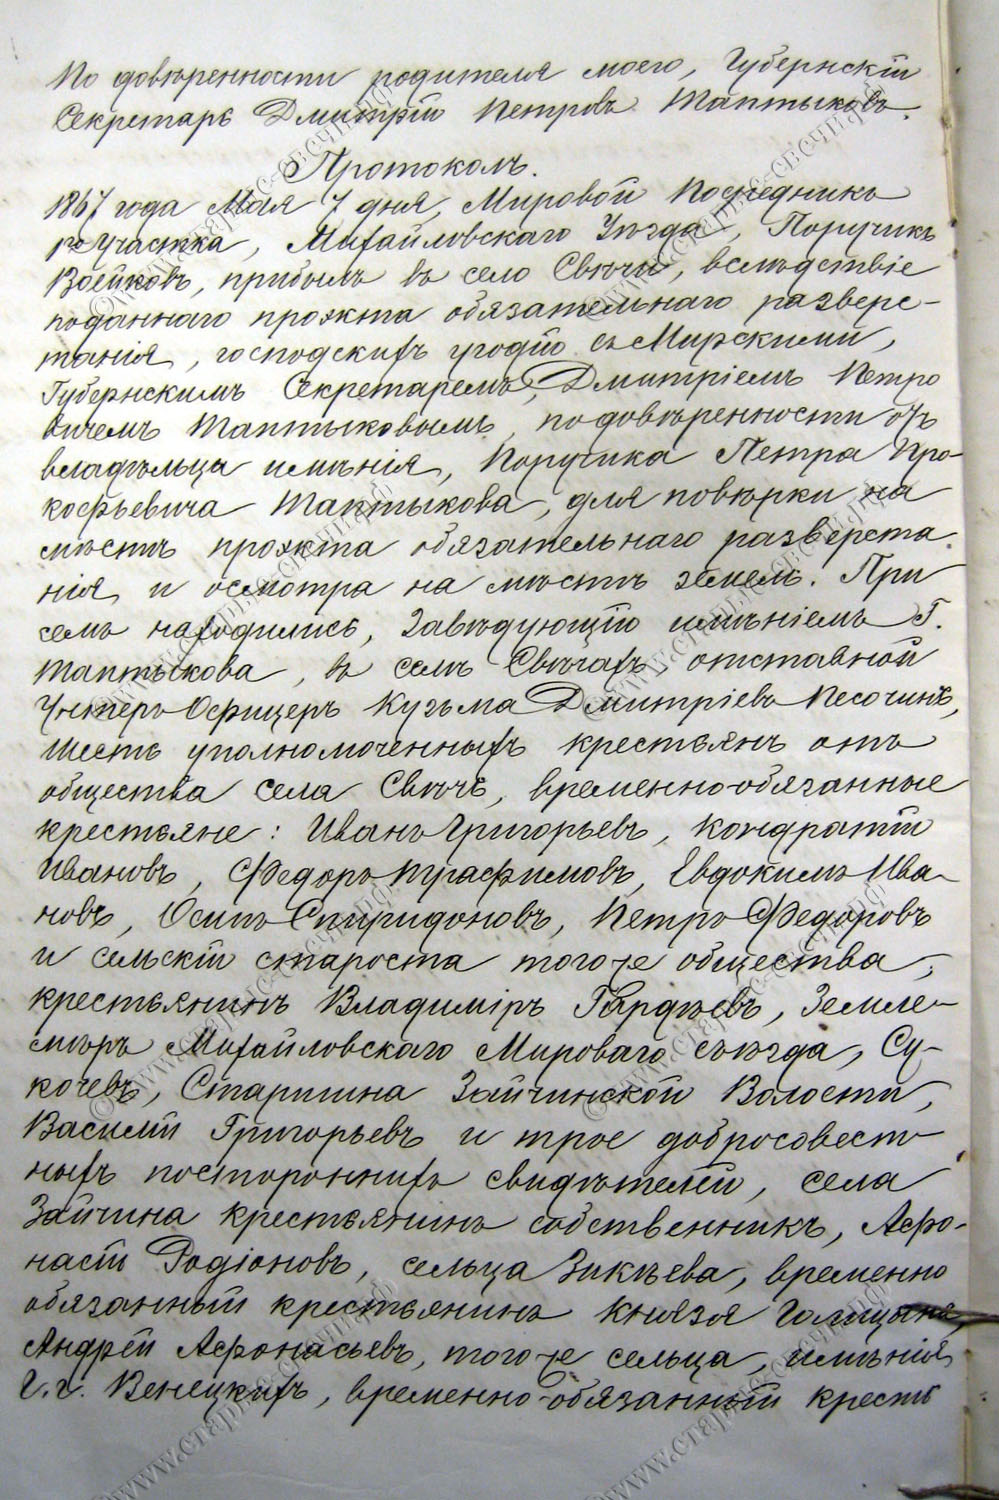 По довѣренности родителя моего, Губернскій
Секретарь Дмитрій Петровъ Таптыковъ.
Протоколъ.
1867 года Мая 7 дня, Мировой Посредникъ
участка, Михайловскаго Уѣзда, Поручикъ
Воейковъ, прибылъ въ село Свѣчи, вслѣдствіе
поданнаго проэкта обязательнаго разверс-
танія, господскихъ угодій съ Мирскими,
Губернскимъ Секретаремъ, Дмитріемъ Петро
вичемъ Таптыковымъ, по довѣренности отъ
владѣльца имѣнія, Поручика Петра Про-
кофьевича Таптыкова, для повѣрки на
мѣстѣ проэкта обязательнаго разверста
нія, и осмотра на мѣстѣ земель. При
семъ находились, Завѣдующій имѣніемъ Г.
Таптыкова, въ селѣ Свѣчахъ отставной
Унтеръ Офицеръ Кузьма Дмитріевъ Песочинъ,
шесть уполномоченныхъ крестьянъ отъ
общества села Свѣчь, временно-обязанные
крестьяне: Иванъ Григорьевъ, Кондратій
Ивановъ, Федоръ Трафимовъ, Евдокимъ Ива-
новъ, Осипъ Спиридоновъ, Петръ Федоровъ
и сельскій староста того-же общества,
крестьянинъ Владиміръ Гордѣевъ, Земле-
мѣръ Михайловскаго Мироваго съѣзда, Су-
кочевъ, Старшина Зайчинской Волости,
Василій Григорьевъ и трое добросовест-
ныхъ постороннихъ свидѣтелей, села
Зайчина крестьянинъ собственникъ, Афо-
насій Родіоновъ, сельца Зикѣева, временно
обязанный крестьянинъ Князя Голицына,
Андрей Афонасьевъ, того-же сельца, имѣнія
Г.г. Венецкихъ, временно-обязанный кресть
www.старые-свечи.рф